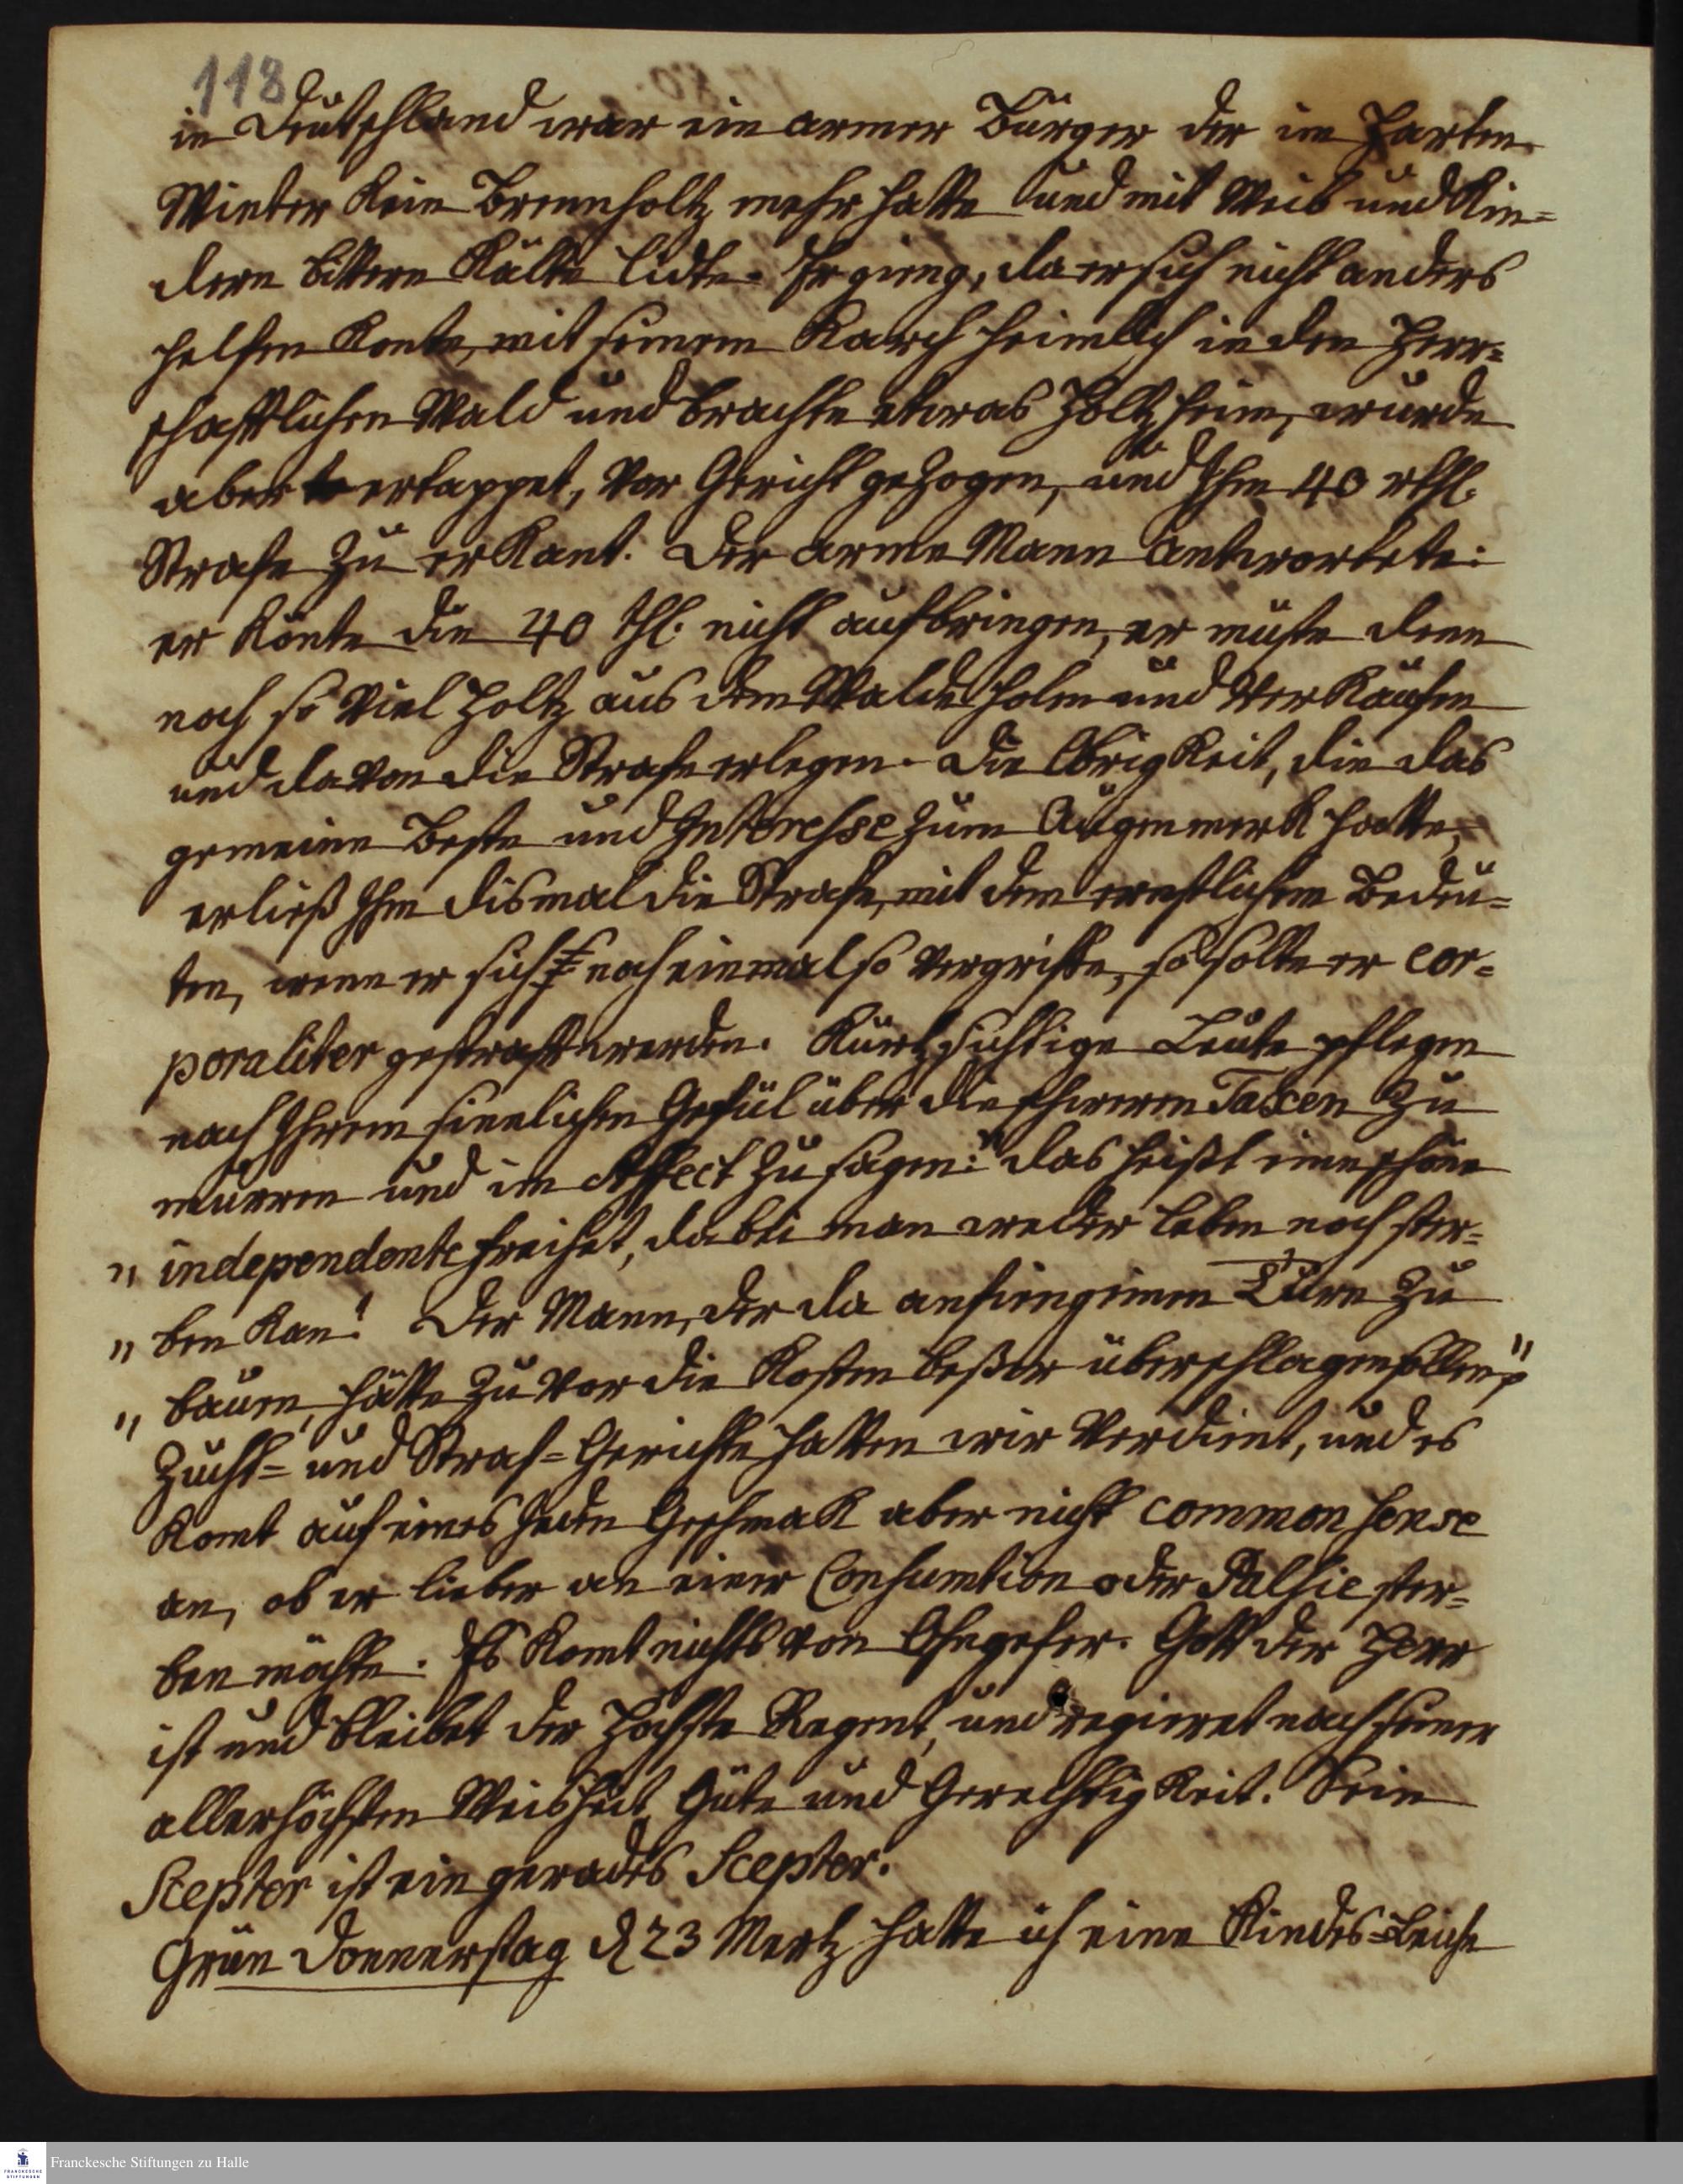 118
in Deutschland war ein armer Bürger der im harten
Winter kein Brennholtz mehr hatte und mit Weib und Kin=
dern bittere Kälte lidte. Er gieng, da er sich nicht anders
helfen konte, mit seinem Karch heimlich in den Herr=
schaftlichen Wald und brachte etwas Holtz heim, wurde
aber ertappet, vor Gericht gezogen, und Ihm 40 rthl.
Strafe zu erkant. Der arme Mann antwortete:
er könte die 40 thl. nicht aufbringen, er müste denn
noch so viel Holtz aus dem Walde holen und verkaufen
und davon die Strafe erlegen. Die Obrigkeit, die das
gemeine Beste und Interesse zum Augenmerk hatte,
erließ Ihm dismal die Strafe, mit dem ernstlichen Bedeu=
ten, wenn er sich noch einmal so vergriffe, so solte er cor=
poraliter gestraft werden. Kurtzsichtige Leute pflegen
nach Ihrem sinnlichen Gefül über die schweren Taxen zu
murren und im Affect zu sagen: "das heißt eine schöne
" independente Freiheit, dabei man weder leben noch ster=
" ben kan! Der Mann, der da anfieng einen Turn zu
" bauen, hätte zu vor die Kosten beßer überschlagen sollen"
Zucht= und Straf=Gerichte hatten wir verdient, und es
komt auf eines jeden Geschmak aber nicht common sense
an, ob er lieber an einer Consumtion oder Palsie ster=
ben möchte. Es komt nichts von Ohngefer. Gott der Herr
ist und bleibet der Höchste Regent, und regieret nach seiner
allerhöchsten Weisheit, Güte und Gerechtigkeit. Sein
Scepter ist ein gerades Scepter.
Grün Donnerstag d 23 Mertz hatte ich eine Kindes=Leiche
FRANCKESCHE
STIFTUNGEN
Franckesche Stiftungen zu Halle